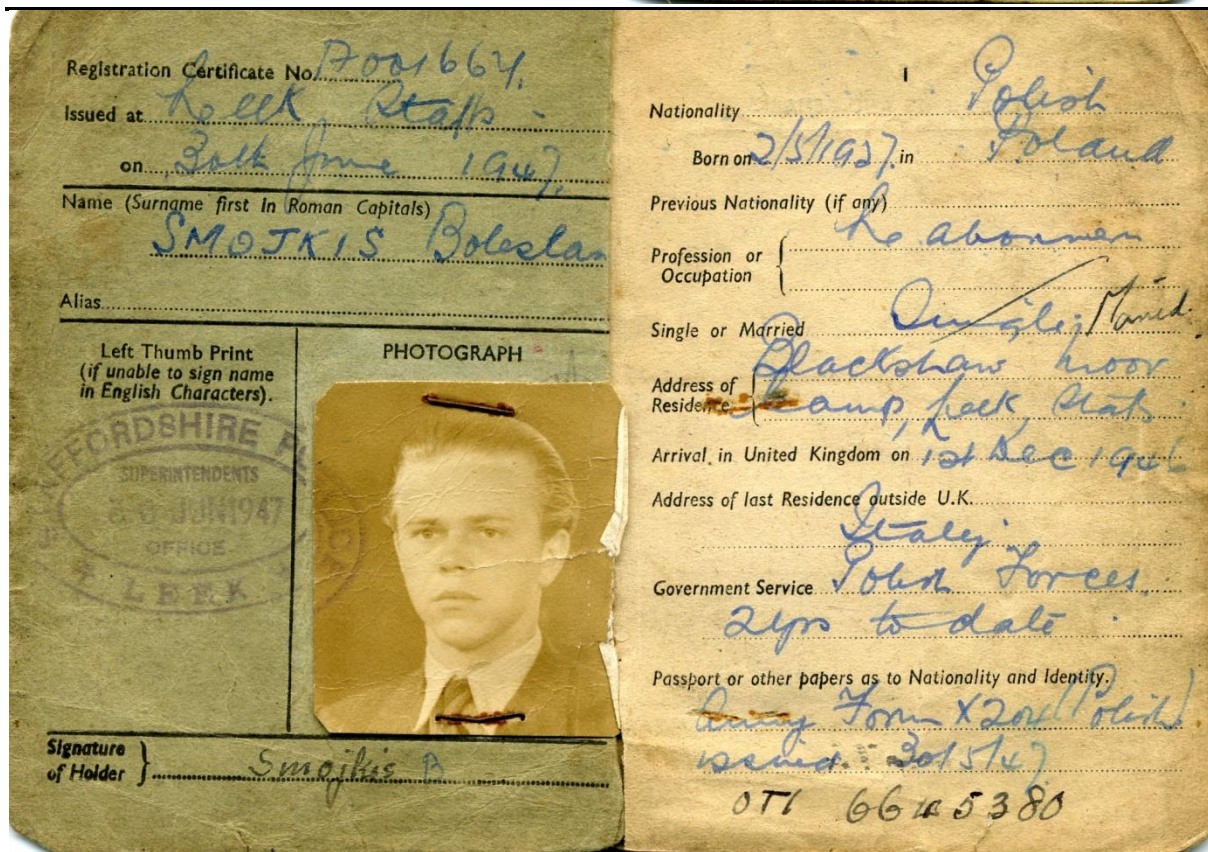 Registration Certificate No.
Issued at Leek Staffs -
on 30th June 1947.
Name (Surname first in Roman Capitals)
SMOJKIS Boleslan
Alias
Left Thumb Print
(if unable to sign name
in English Characters).
PHOTOGRAPH
STAFFORDSHIRE
SUPERINTENDENTS
30 JUN 1947
OFFICE
LEEK
Signature
of Holder } Smojkis B
1
Nationality Polish
Born on 2/5/1927. in Poland
Previous Nationality (if any)
Profession or
Occupation
Single or Married Single, Married.
Blackshaw Moor
Address of
Residence Camp, Leek, Staffs.
Arrival in United Kingdom on 1st Dec 1946
Address of last Residence outside U.K.
Italy.
Government Service Polish Forces.
2 yrs to date.
Passport or other papers as to Nationality and Identity.
Army Form X204 (Polish)
issued 30/5/47.
5380